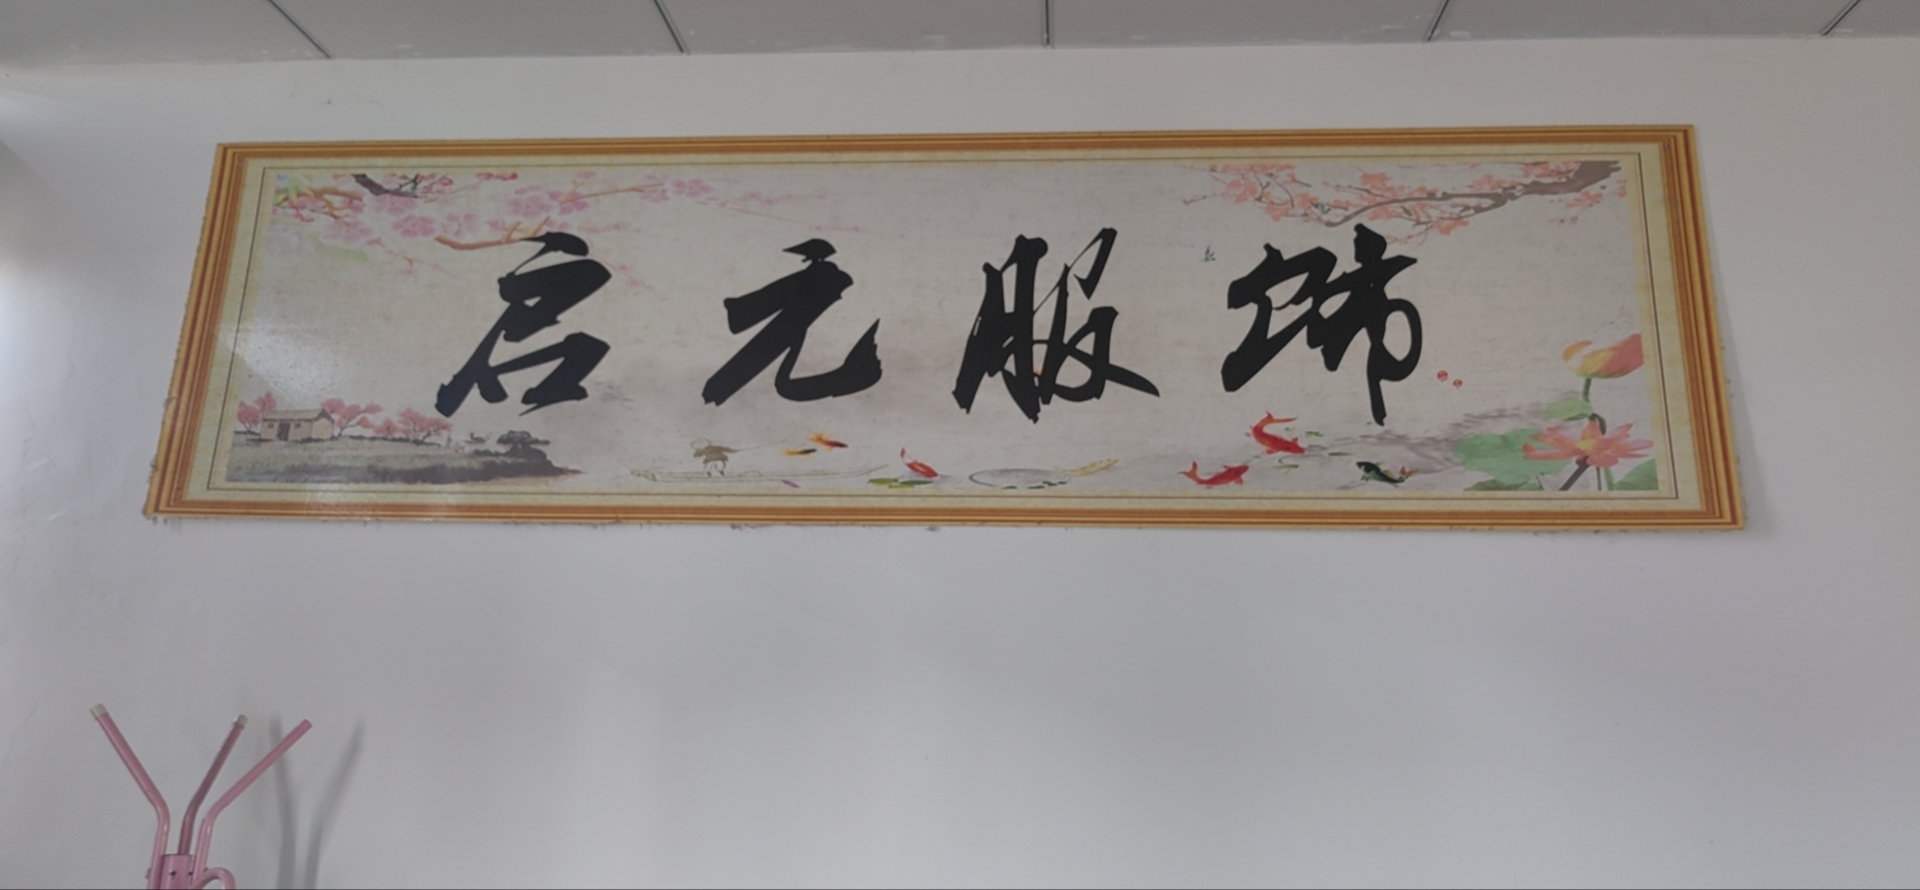 启元服饰